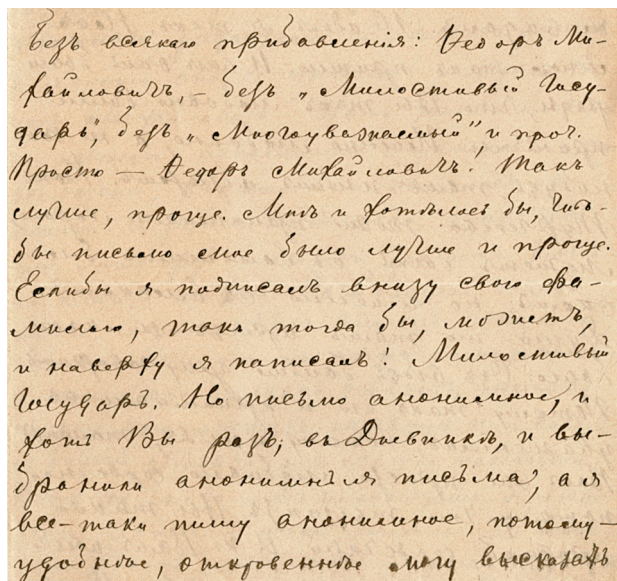 Безъ всякаго прибавленія: Ѳедоръ Ми-
хайловичъ, – безъ „Милостивый Госу-
дарь“, безъ „Многоуважаемый“, и проч.
Просто — Ѳедоръ Михайловичъ. Такъ
лучше, проще. Мнѣ и хотѣлось бы, что-
бы письмо мое было лучше и проще.
Еслибы я подписалъ внизу свою фа-
милью, такъ тогда бы, можетъ,
и наверху я написалъ: Милостивый
Государь. Но письмо анонимное, и
хоть Вы разъ, въ Дневникѣ, и вы-
бранили анонимныя письма, а я
все-таки пишу анонимное, потому-
удобнѣе, откровеннѣе могу высказать